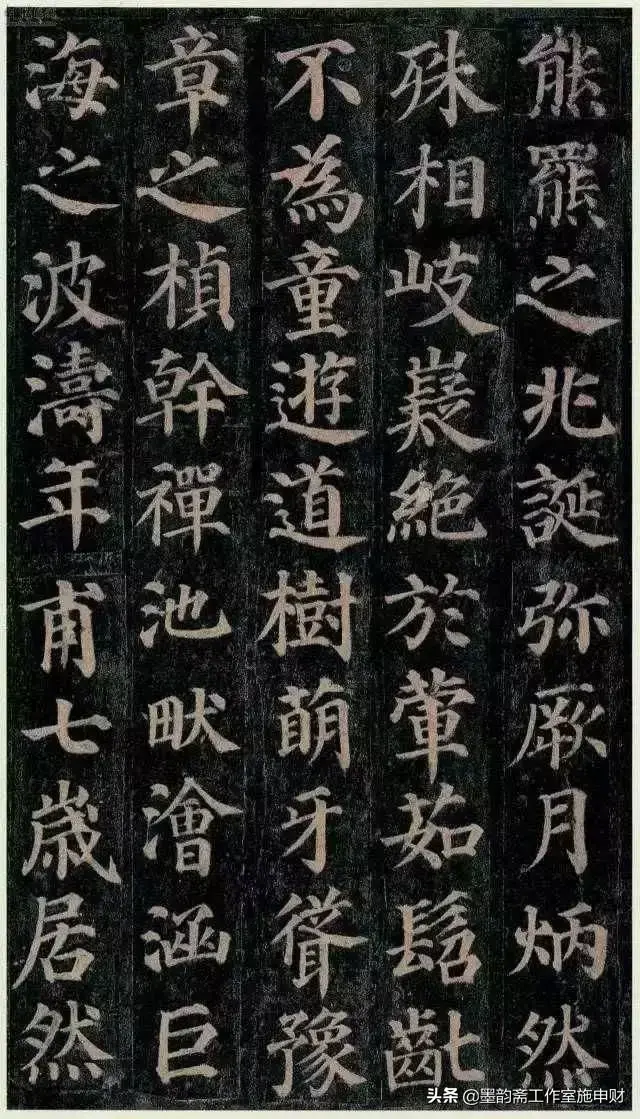 熊羆之兆誕弥厥月炳然
殊相岐嶷絕於葷茹髫齔
不為童遊道樹萌牙聳豫
章之楨幹禪池畎澮涵巨
海之波濤年甫七歲居然
头条 @墨韵斋工作室施申财